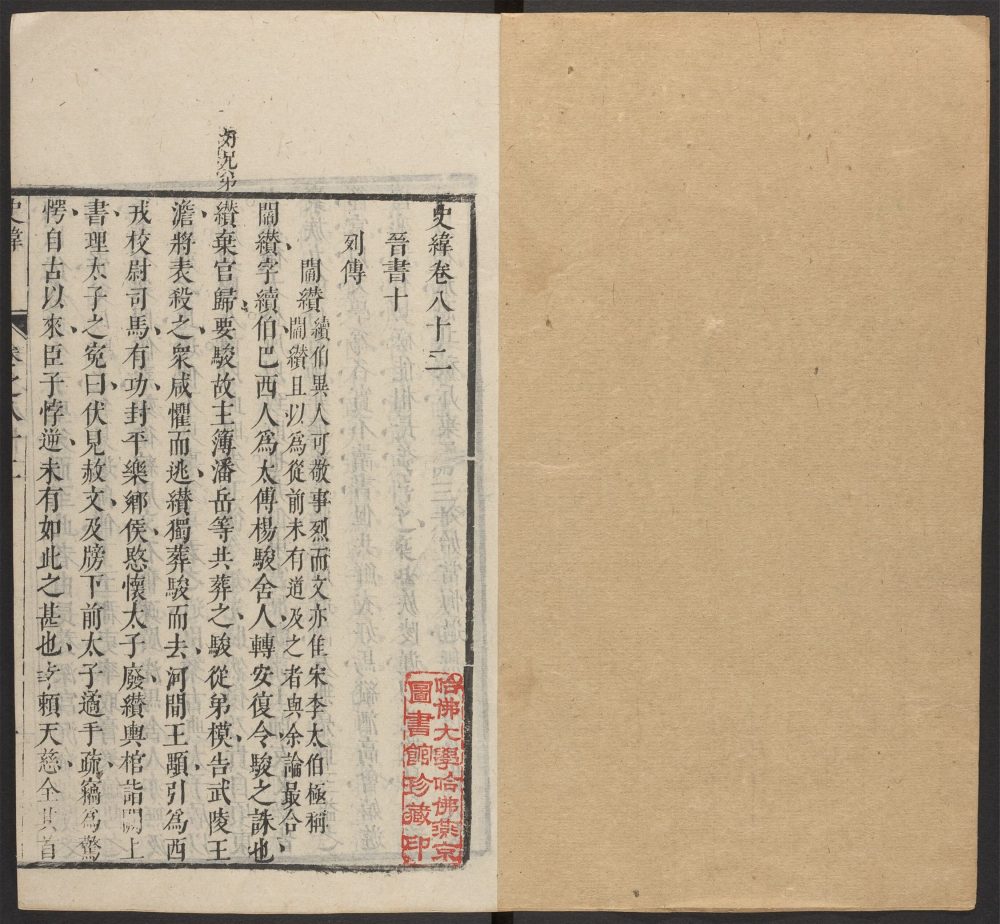 史緯卷八十二
晉書十
列傳
閻纘
續伯異人可敬事烈而文亦隹宋李太伯極稱
閻纘且以為從前未有道及之者與余論最合
閻纘字續伯巴西人爲太傅楊駿舍人轉安復令駿之誅也
纘棄官歸要駿故主簿潘岳等共葬之駿從弟模告武陵王
澹將表殺之衆咸懼而逃纘獨葬駿而去河間王顒引爲西
戎校尉司馬有功封平樂鄉侯愍懷太子廢纘輿棺詣闕上
書理太子之寃曰伏見赦文及牓下前太子遹手疏竊爲驚
愕自古以來臣子悖逆未有如此之甚也幸賴天慈全其首
史緯
卷之八十二
一
兄弟
哈佛大學哈佛燕京
圖書館珍藏印